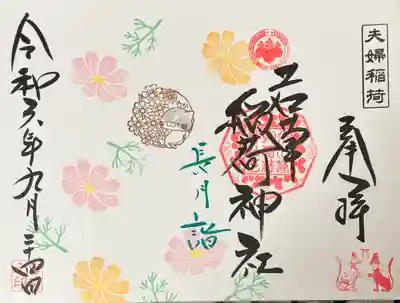 夫婦稲荷
奉拝
稲荷神社
長月詣
令和六年九月二十四日